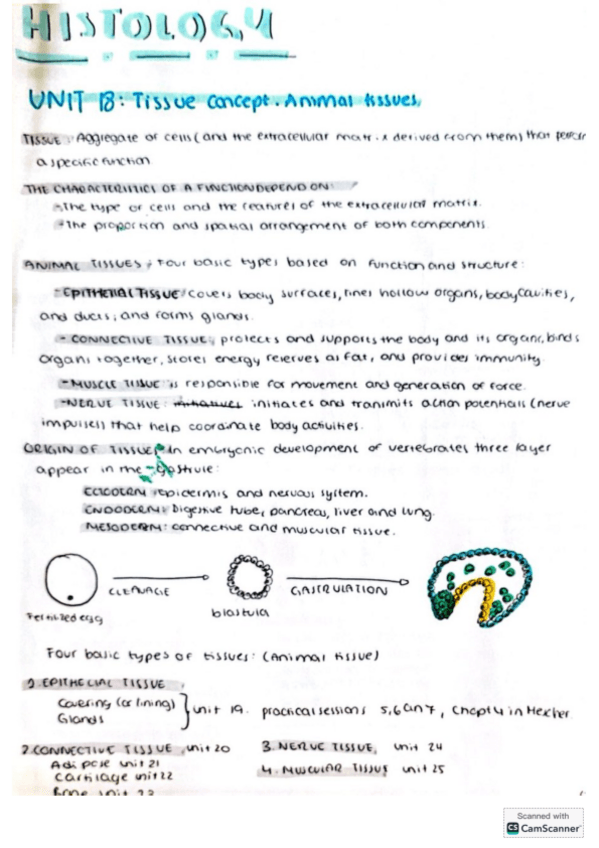 HISTOLOGY
UNIT 18: Tissue concept. Animal tissues.
TISSUE: Aggregate of cells (and the extracellular matrix derived from them) that perform
a specific function
THE CHARACTERISTICS OF A FUNCTION DEPEND ON:
-The type of cells and the features of the extracellular matrix.
-The proportion and spatial arrangement of both components.
ANIMAL TISSUES: Four basic types based on function and structure:
-EPITHELIAL TISSUE: covers body surfaces, lines hollow organs, body cavities,
and ducts, and forms glands.
- CONNECTIVE TISSUE: protects and supports the body and its organs, binds
organs together, stores energy reserves as fat, and provides immunity.
-MUSCLE TISSUE: is responsible for movement and generation of force.
-NERVE TISSUE: initiates initiates and transmits action potentials (nerve
impulses) that help coordinate body activities.
ORIGIN OF TISSUE: In embryonic development of vertebrates three layer
appear in the Gastrule:
ECTODERM: epidermis and nervous system.
ENDODERM: Digestive tube, pancreas, liver and lung.
MESODERM: connective and muscular tissue.
CLEAVAGE GASTRULATION
Fertilized egg blastula
Four basic types of tissues: (Animal tissue)
1. EPITHELIAL TISSUE:
Covering (or lining)
Glands
unit 19. practical sessions 5,6 an 7, Chapt 4 in Hexher.
2. CONNECTIVE TISSUE, unit 20 3. NERVE TISSUE, unit 24
Adipose unit 21 4. MUSCULAR TISSUE unit 25
Cartilage unit 22
Bone unit 23
Scanned with
CS CamScanner